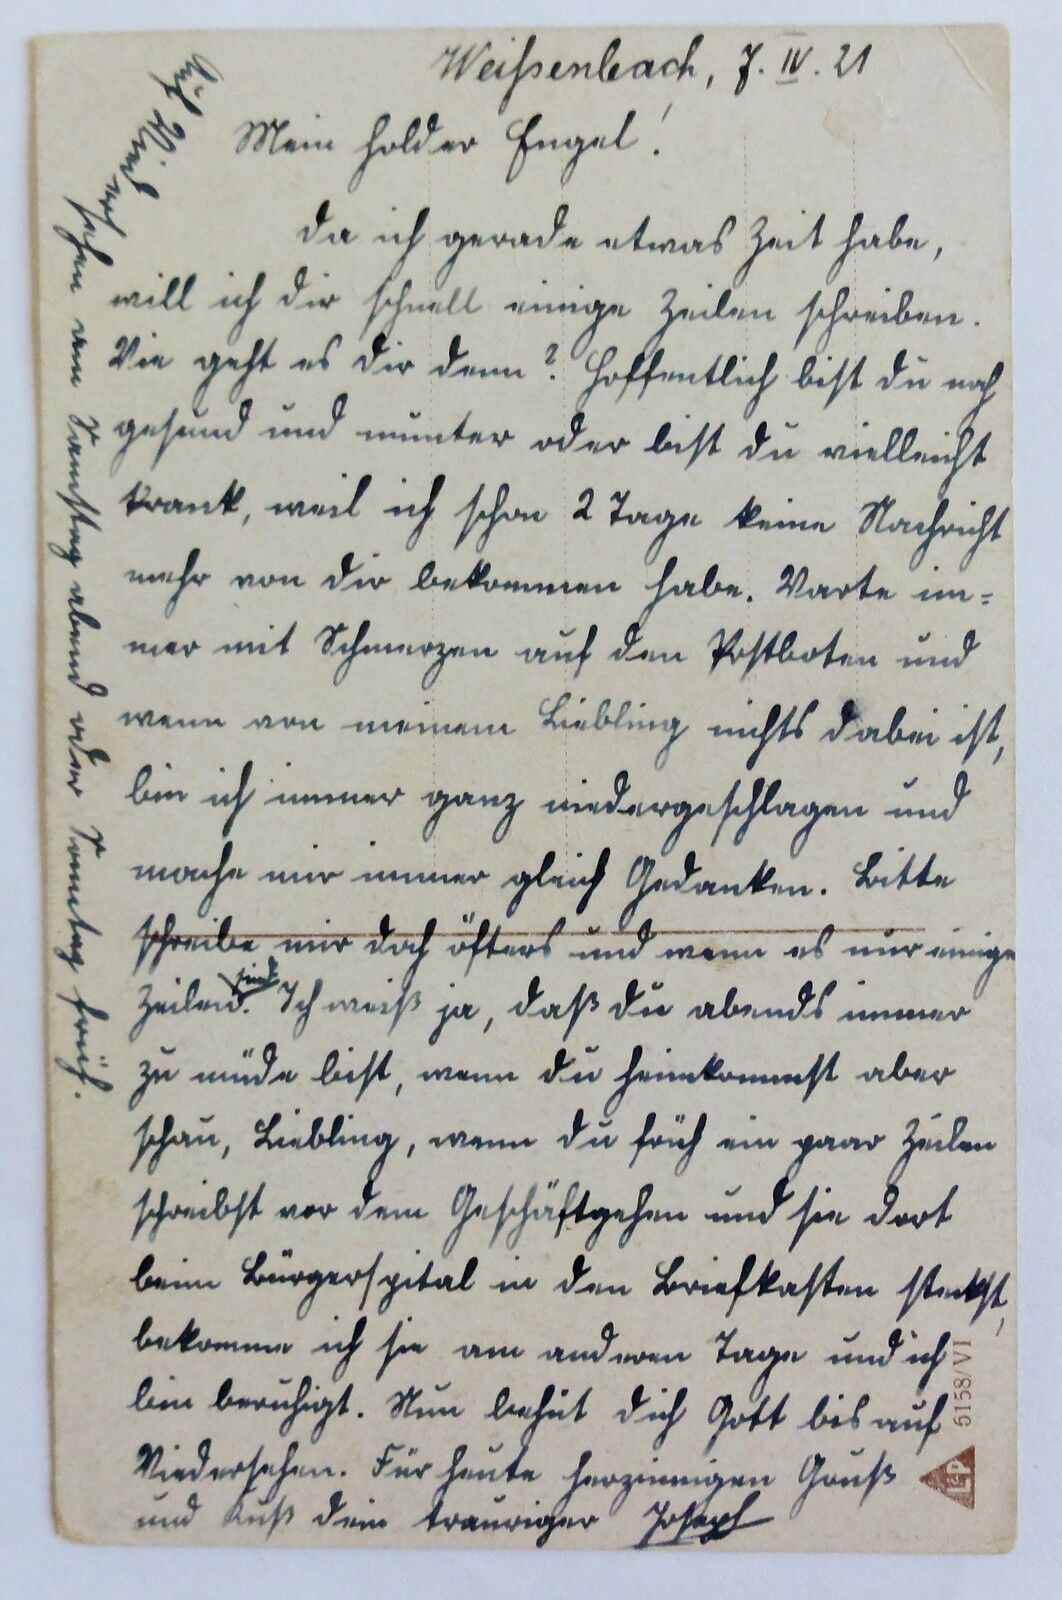 Weißenbach, 7. IV. 21
Mein holder Engel!
Da ich gerade etwas Zeit habe,
will ich dir schnell einige Zeilen schreiben.
Wie geht es dir denn? Hoffentlich bist du noch
gesund und munter oder bist du vielleicht
krank, weil ich schon 2 Tage keine Nachricht
mehr von dir bekommen habe. Warte im=
mer mit Schmerzen auf den Postboten und
wenn von meinem Liebling nichts dabei ist,
bin ich immer ganz niedergeschlagen und
mache mir immer gleich Gedanken. Bitte
schreibe mir doch öfters und wenn es nur einige
Zeilen sind. Ich weiß ja, daß du abends immer
zu müde bist, wenn du heimkommst aber
schau, Liebling, wenn du früh ein paar Zeilen
schreibst vor dem Geschäftgehen und sie dort
beim Bürgerspital in den Briefkasten steckst,
bekomme ich sie am anderen Tage und ich
bin beruhigt. Nun behüt dich Gott bis auf
Wiedersehen. Für heute herzinnigen Gruß
und Kuß dein trauriger Joseph
Auf Wiedersehen am Samstag abend oder Sonntag früh.
6158/VI
LP